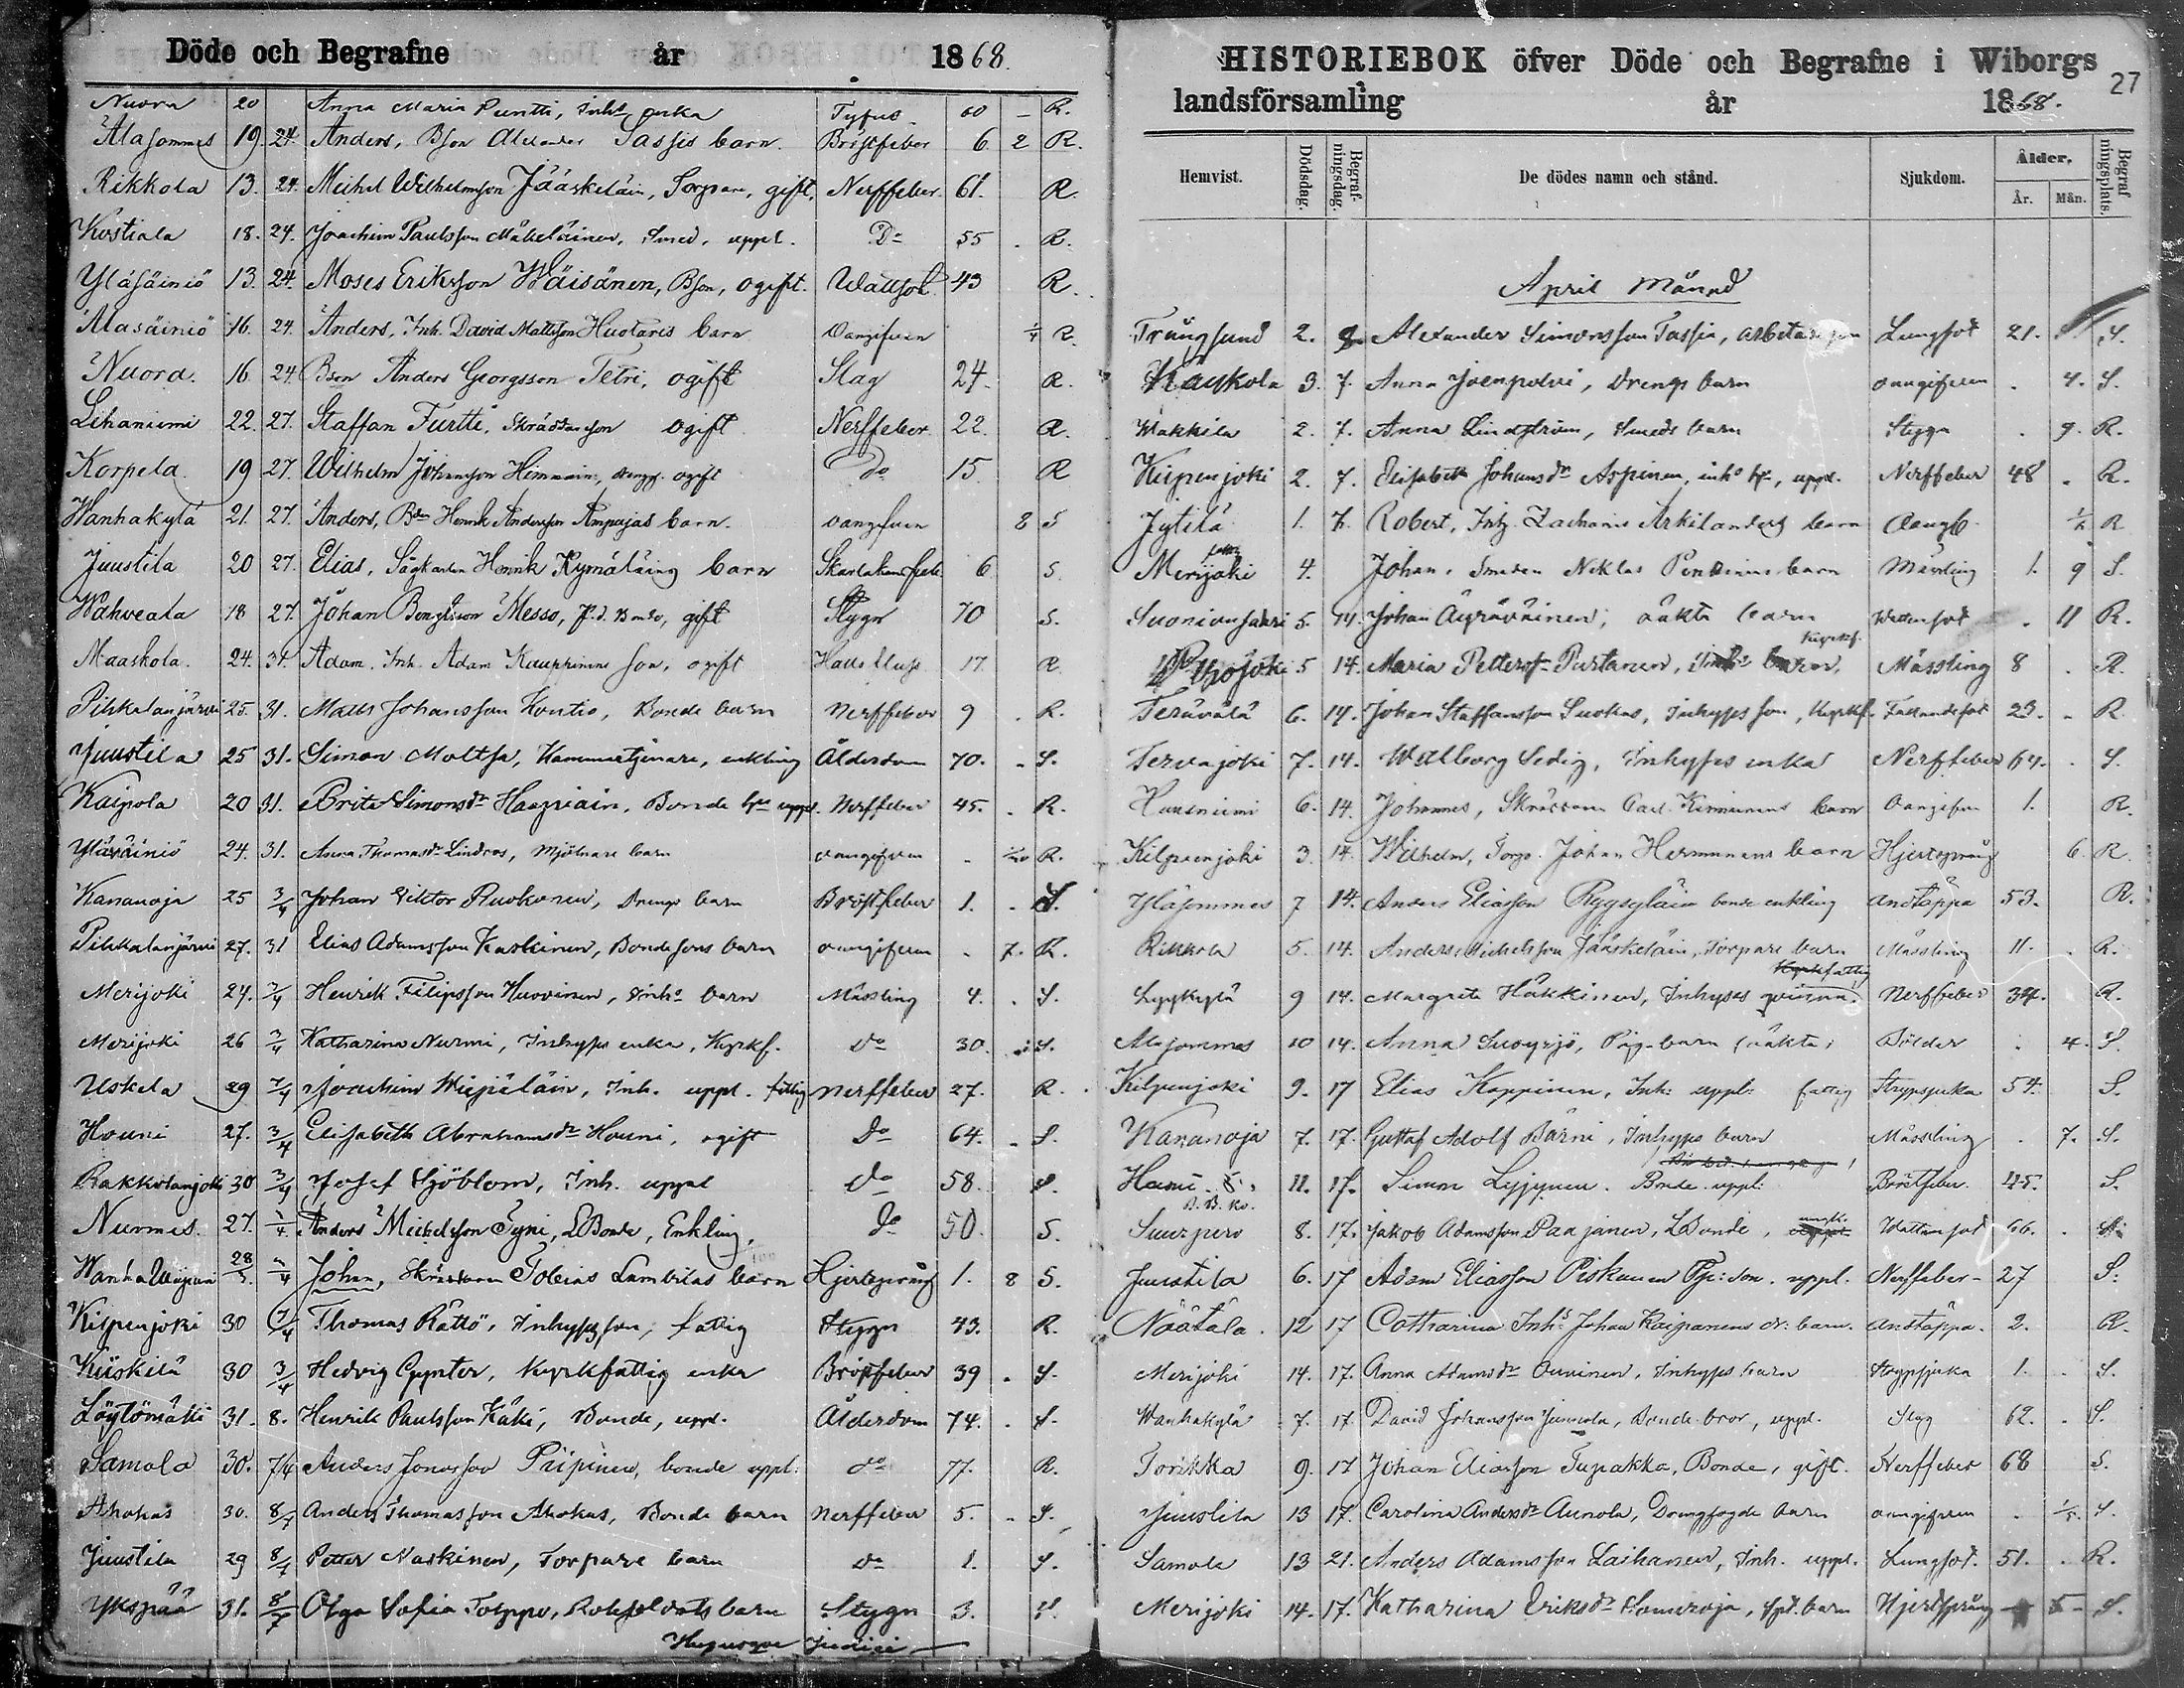 Döde och Begrafne år 1868.
Nuora 20 Anna Maria Puntti, Inhs enka Tyfus 60 - R.
Alasommee 19. 24. Anders, Bson Alexander Sassis barn. Bröstfeber 6 2 R.
Rikkola 13. 24. Michel Wilhelmson Jääskeläin, Torpare, gift, Nerffeber 61. R.
Kostiala 18. 24. Joachim Paulsson Mäkeläinen, Smed, uppl. Do 55 . R.
Yläsäiniö 13. 24. Moses Eriksson Wäisänen, Bson, ogift. Wattsot 43 R.
Alasäiniö 16. 24. Anders, Inh. David Mattsson Huotaris barn Oangifven R.
Nuora. 16. 24. Bson Anders Georgsson Tetri, ogift Slag 24. R.
Lihaniemi 22. 27. Staffan Turtti, Skräddareson ogift Nerffeber 22. R.
Korpela 19 27. Wilhelm Johansson ogift Do 15. R
Wanhakylä 21. 27. Anders, Bdn Henrik Andersson Ampujas barn. oangifven 8 S
Juustila 20 27. Elias, Sågkarlen Henrik Kymäläins barn 6 S.
Wahveala 18 27. Johan Bengtsson Messo, F.d. Bonde, gift Stygn 70 S.
Maaskola. 24. 31. Adam. Inh. Adam Kauppinens son, ogift 17. R.
Pihkalanjärvi 25. 31. Matts Johansson Kontio, Bonde barn Nerffeber 9 . R.
Juustila 25 31. Simon Moltsa, Kammartjenare, enkling Ålderdom 70. - S.
Kaipola 20 31. Brita Simonsdr Haapiain, Bonde hu uppl. Nerffeber 45. . R.
Yläsäiniö 24. 31. Anna Thomasdr Lindros, Mjölnare barn oangifven - R.
Kananoja 25 3/4 Johan Viktor Ruokonen, Drengs barn Bröstfeber 1. - S.
Pihkalanjärvi 27. 31 Elias Adamsson Kaskinen, Bondesons barn oangifven - 7. R.
Merijoki 24. 7/4 Henrik Filipsson Huovinen, Inhs barn Mässling 4. . S.
Merijoki 26 3/4 Katharina Nurmi, Inhyses enka, Kyrkf. Do 30. S.
Uskela 29 7/4 Joachim Wiepiäläin, Inh. uppl. fattig Nerffeber 27. R.
Houni 27. 3/4 Elisabeth Abrahamsdr Houni, ogift Do 64. - S.
Rakkolanjoki 30 3/4 Josef Sjöblom, Inh. uppl Do 58. S.
Nurmis. 27. Anders Michelsson Tyni, LBonde, Enkling, Do 50. S.
28/3. Johan, Skräddaren Tobias Lambitas barn Hjertsprång 1. 8 S.
Kilpenjoki 30 7/4 Thomas Rättö, Inhyses son, fattig Stygn 43. R.
Kiiskilä 30 3/4 Hedvig Gynter, Kyrkfattig enka Bröstfeber 39 . S.
Löytömäki 31. 8. Henrik Paulsson Käki, Bonde, uppl. Ålderdom 74. . S.
Samola 30. 7/4 Anders Jonasson Piipinen, bonde uppl. do 77. R.
Ahokas 30. 8/4 Anders Thomasson Ahokas, Bonde barn Nerffeber 5. - S.
Juustila 29 8/4 Petter Naskinen, Torpare barn Do 1. S.
Ykspää 31. 8/4 Olga Sofia Torppo, Rotesoldats barn Stygn 3. S.
HISTORIEBOK öfver Döde och Begrafne i Wiborgs 27
landsförsamling år 1868.
Hemvist. Dödsdag. Begrafningsdag. De dödes namn och stånd. Sjukdom. Ålder, År. Mån. Begrafningsplats.
April Månad
Trångsund 2. 8. Alexander Simonsson Tassia, arbetareson Lungsot 21. S.
Kaukola 3. 7. Anna Joenpolvi, Drengs barn oangifven . 4. S.
Wakkila 2. 7. Anna Lindström, Smeds barn Stygn . 9. R.
Kilpenjoki 2. 7. Elisabeth Johansdr Aspinen, inhs hu, uppl. Nerffeber 48 . R.
Jytilä 1. 7. Robert, Inh. Zacharias Arkilanders barn Oangif. R
Merijoki 4. Johan, Smeden Niklas barn Mässling 1. 9 S.
Suonionsaari 5. 14. Johan Äyräväinen, oäkta barn Wattensot . 11 R.
5 14. Maria Pettersdr Purtanen, Mässling 8 . R.
Kyrkf.
Terävälä 6. 14. Johan Staffansson Suokas, Inhyses son, Kyrkf. Fallandesot 23. - R.
Tervajoki 7. 14. Walborg Sedig, Inhyses enka Nerffeber 64. . S.
6. 14. Johannes, Skräddaren Carl Kinnunens barn Oangifven 1. R.
Kilpeenjoki 3. 14. Wilhelm, Torp. Johan Hermunens barn Hjertsprång 6. R.
Yläsommee 7 14. Anders Eliasson Ryysyläin bonde enkling Andtäppa 53. R.
Rikkola 5. 14. Anders Michelsson Jääskeläin, Torpare barn Mässling 11. . R.
Kyrkfattig
Lyykylä 9 14. Margreta Häkkinen, Inhyses qvinna. Nerffeber 34. R.
Alasommee 10 14. Anna Suosyrjö, Pig-barn oäkta, Bölder . 4. S.
Kilpenjoki 9. 17 Elias Koppinen, Inh: uppl: fattig Strypsjuka 54. S.
Kananoja 7. 17. Gustaf Adolf Bärni, Inhyses barn Mässling . 7. S.
11. 17. Simon Lyijynen. Bonde uppl: Bröstfeber. 45. S.
Suurpero 8. 17. Jakob Adamsson Paajanen, LBonde, Wattensot 66. . S.
Juustila 6. 17 Adam Eliasson Piskunen uppl. Nerffeber - 27 S:
Näätälä. 12 17 Catharina Inhs Johan Kaipanens barn. Andtäppa. 2. R.
Merijoki 14. 17. Anna Adamsdr Ouvinen, Inhyses barn Strypsjuka 1. . S.
Wanhakylä 7. 17. David Johansson Junnola, Bonde bror, uppl. Slag 62. . S.
Torikka 9. 17 Johan Eliasson Tupakka, Bonde, gift. Nerffeber 68 S.
Juustila 13 17. Carolina Andersdr Aunola, Drengfogde barn oangifven . S.
Samola 13 21. Anders Adamsson Laihanen, Inh. uppl. Lungsot. 51. . R.
Merijoki 14. 17. Katharina Eriksdr Someroja, barn Hjertsprång 5 - S.